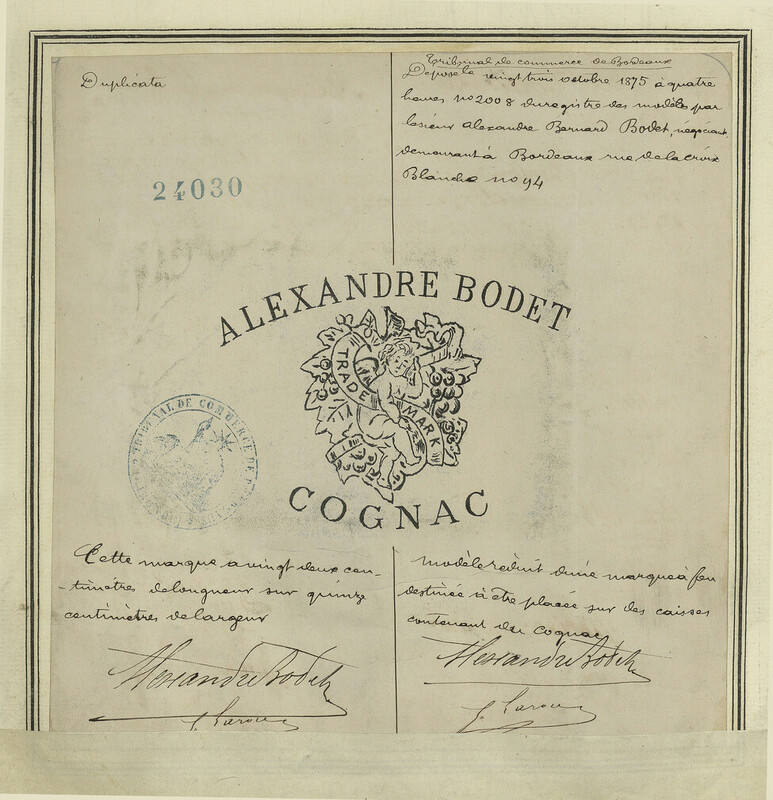 Duplicata
Tribunal de commerce de Bordeaux
Déposé le vingt trois octobre 1875 à quatre
heures no 2008 du registre des modèles par
le sieur Alexandre Bernard Bodet, négociant
demeurant à Bordeaux rue de la croix
Blanche no 94
24030
ALEXANDRE BODET
TRADE MARK
COGNAC
TRIBUNAL DE COMMERCE DE
Cette marque a vingt deux cen-
-timètres de longueur sur quinze
centimètres de largeur
modèle réduit d'une marque à feu
destinée à être placée sur des caisses
contenant du cognac
Alexandre Bodet
Alexandre Bodet